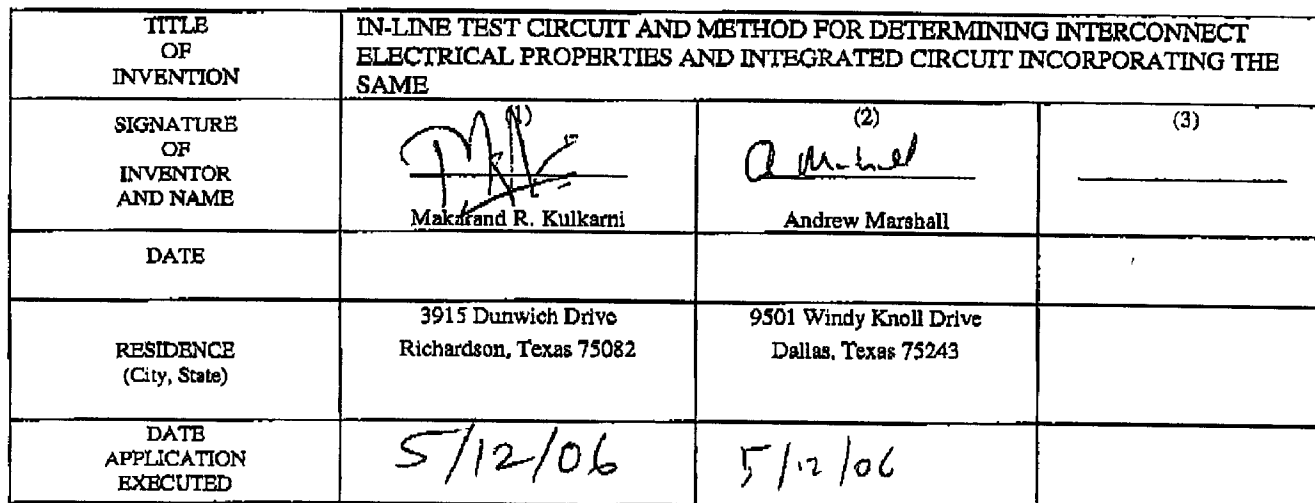 TITLE
OF
INVENTION
IN-LINE TEST CIRCUIT AND METHOD FOR DETERMINING INTERCONNECT
ELECTRICAL PROPERTIES AND INTEGRATED CIRCUIT INCORPORATING THE
SAME
SIGNATURE
OF
INVENTOR
AND NAME
(1)
Makarand R. Kulkarni
(2)
Andrew Marshall
(3)
DATE
RESIDENCE
(City, State)
3915 Dunwich Drive
Richardson, Texas 75082
9501 Windy Knoll Drive
Dallas, Texas 75243
DATE
APPLICATION
EXECUTED
5/12/06
5/12/06